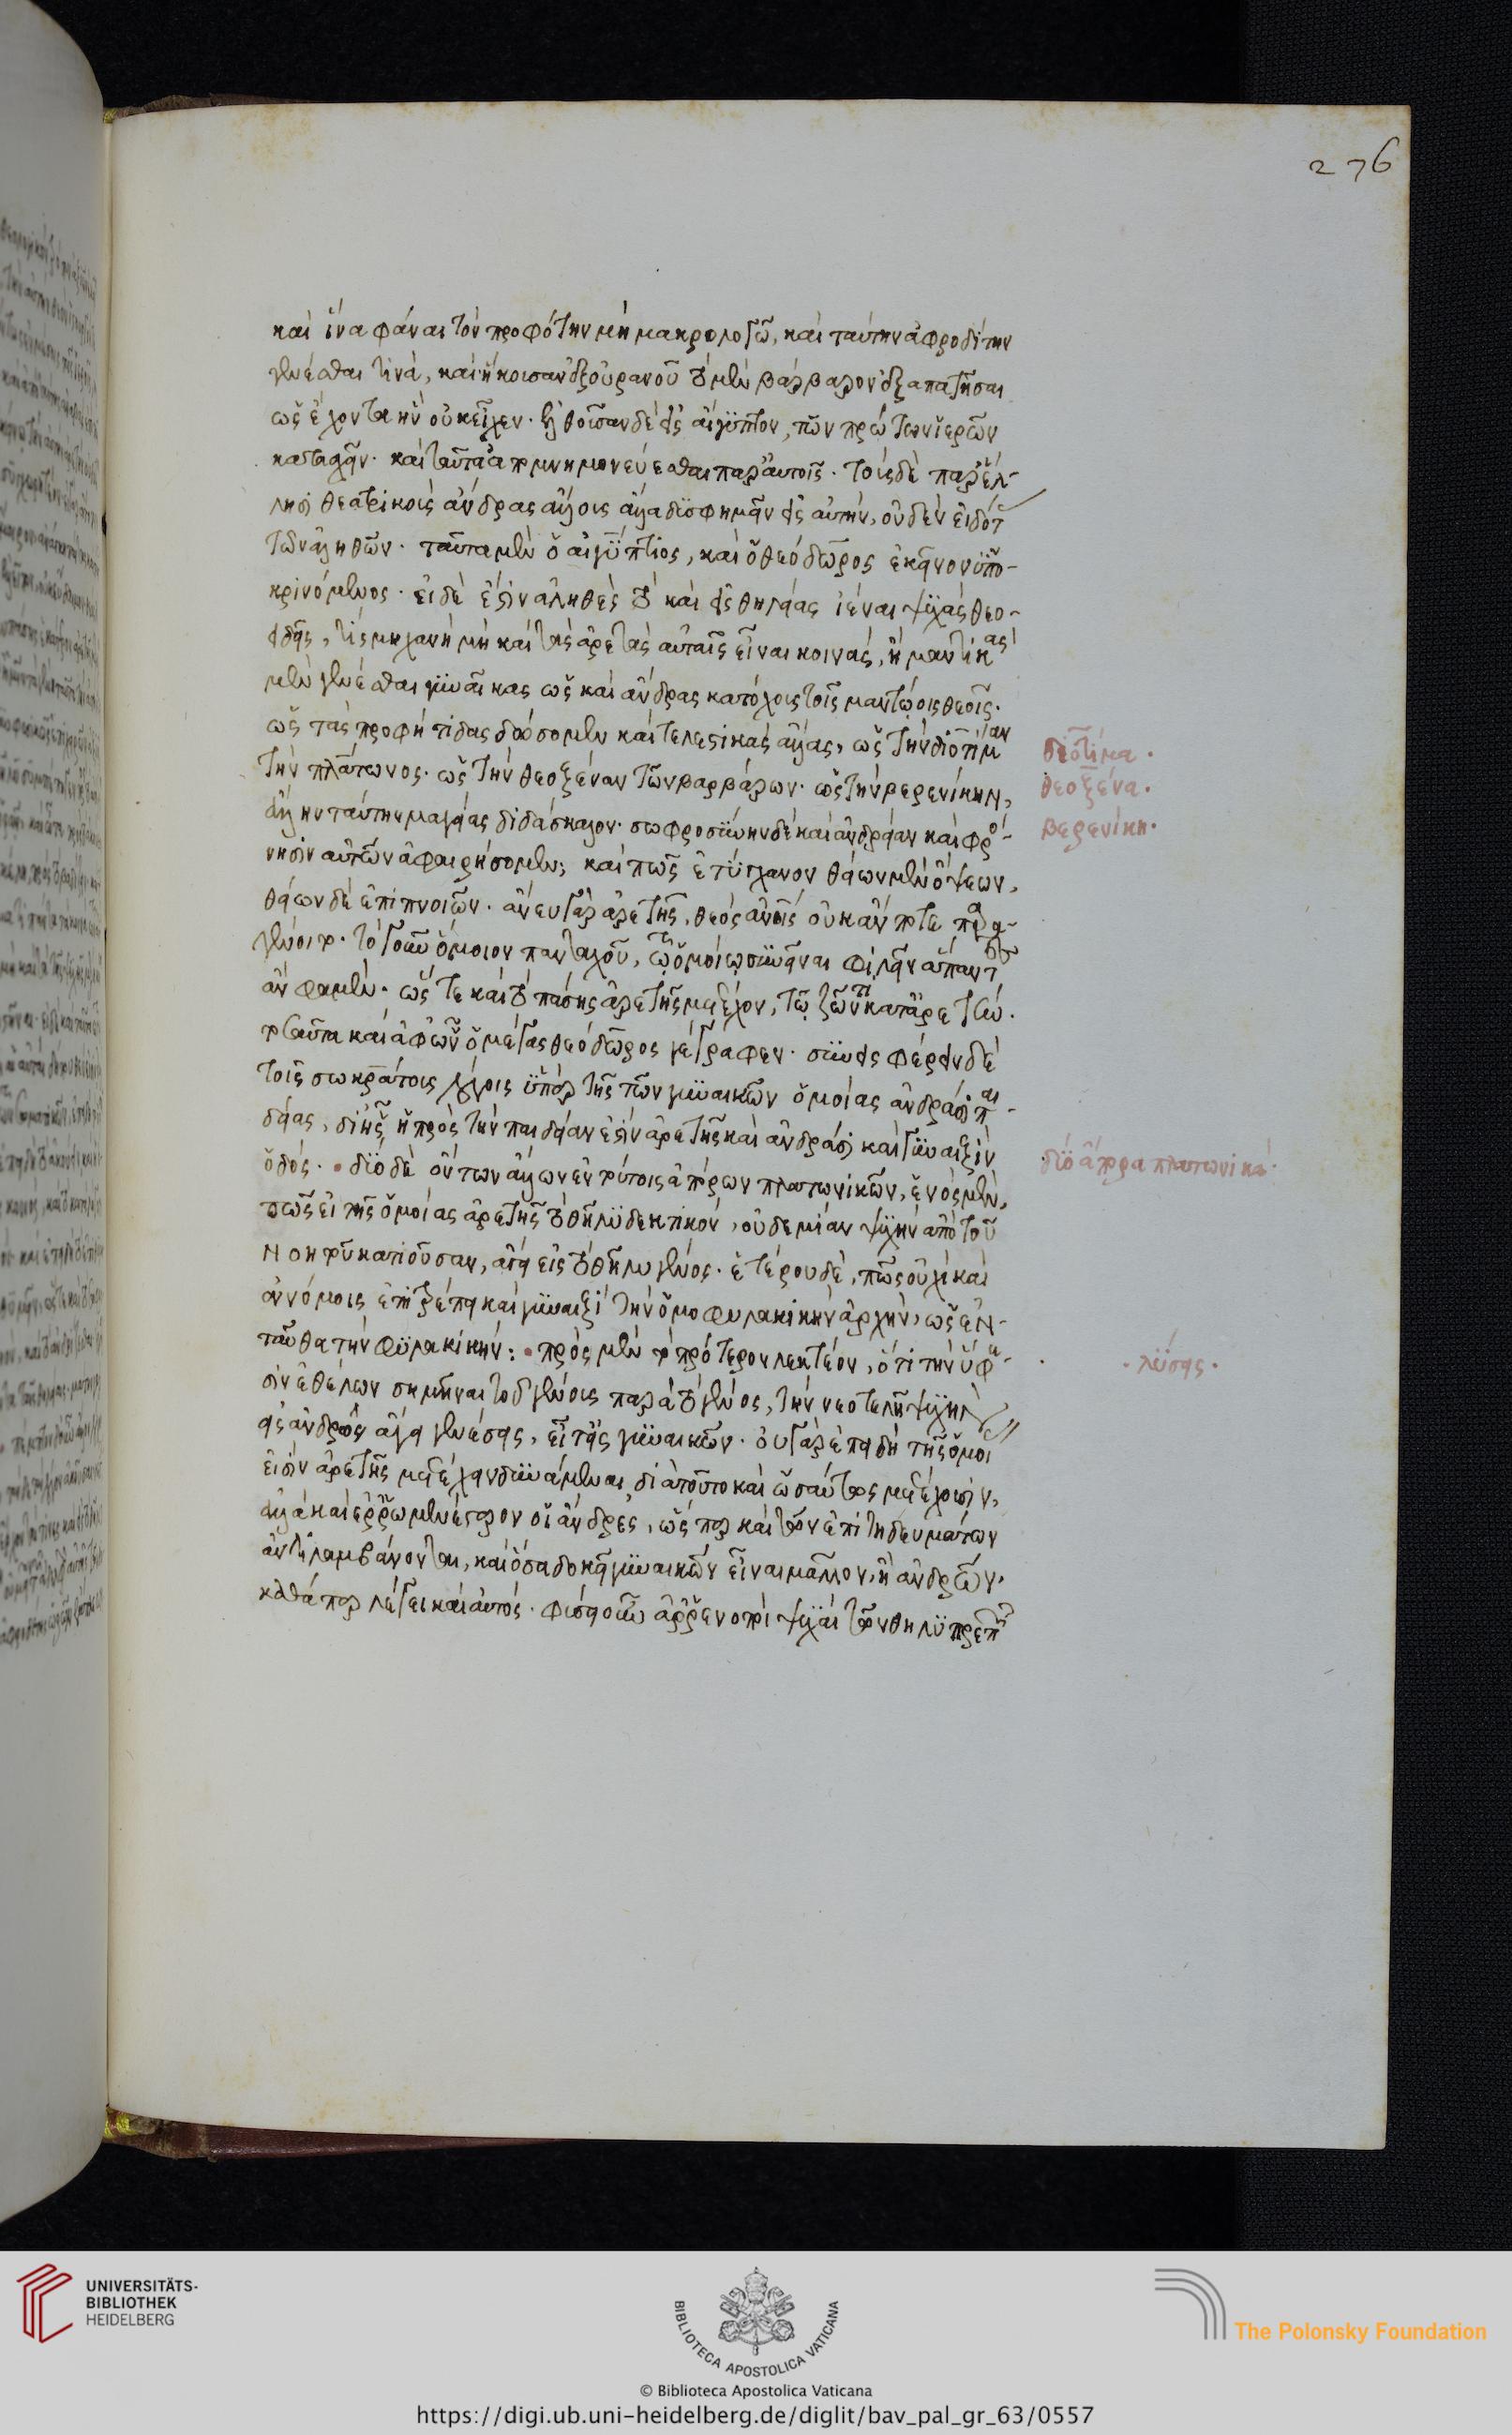 276
καὶ ἵνα φάναι τὸν προφήτην μὴ μακρολογῶ, καὶ ταύτην ἀφροδίτην
γενέσθαι τινὰ, καὶ ἥκουσαν ἐξ οὐρανοῦ τὸ μὲν βάρβαρον ἐξαπατῆσαι
ὡς ἔχοντα ἣν οὐκ εἶχεν. ἐλθοῦσαν δὲ εἰς αἴγυπτον, τῶν πρώτων ἱερῶν
καταλαχεῖν. καὶ ταῦτα ἀπομνημονεύεσθαι παρ' αὐτοῖς. τοὺς δὲ παρ' ἕλ-
λησι θεατρικοὺς ἄνδρας ἄλλοις ἄλλα δυσφημεῖν εἰς αὐτήν, οὐδὲν εἰδότ
τῶν ἀληθῶν. ταῦτα μὲν ὁ αἰγύπτιος, καὶ ὁ θεόδωρος ἐκεῖνον ὑπο-
κρινόμενος. εἰ δὲ ἐστὶν ἀληθὲς τὸ καὶ εἰς θηλείας ἰέναι ψυχὰς θεο-
ειδεῖς, τίς μηχανὴ μὴ καὶ τὰς ἀρετὰς αὐταῖς εἶναι κοινάς, ἢ μαντικὰς
μὲν γενέσθαι γυναῖκας ὡς καὶ ἄνδρας κατόχοις τοῖς μαντῴοις θεοῖς.
ὡς τὰς προφήτιδας δώσομεν καὶ τελεστικὰς ἄλλας, ὡς τὴν διοτίμαν
τὴν πλάτωνος. ὡς τὴν θεοξέναν τῶν βαρβάρων. ὡς τὴν βερενίκην,
ἄλλην ταύτην μαγείας διδάσκαλον. σωφροσύνην δὲ καὶ ἀνδρείαν καὶ φρό-
νησιν αὐτῶν ἀφαιρήσομεν; καὶ πῶς ἐτύγχανον θείων μὲν ὄψεων,
θείων δὲ ἐπιπνοιῶν. ἄνευ γὰρ ἀρετῆς, θεὸς ἀνοις οὐκ ἄν ποτε παρα-
γένοιτο. τὸ γοῦν ὅμοιον πανταχοῦ, τῷ ὁμοίῳ συνεῖναι φιλεῖν ἅπαντες
ἂν φαμὲν. ὥς τε καὶ τὸ πάσης ἀρετῆς μετέχον, τῷ ζῶντι κατ' ἀρετήν.
τοιαῦτα καὶ ἀφ' ὧν ὁ μέγας θεόδωρος γέγραφεν. συνεισφέρειν δὲ
τοῖς σωκράτοις λόγοις ὑπὲρ τῆς τῶν γυναικῶν ὁμοίας ἀνδράσι παι-
δείας, δι' ἧς ἡ πρὸς τὴν παιδείαν ἐστὶν ἀρετῆς καὶ ἀνδράσι καὶ γυναιξὶν
ὁδός. δύο δὲ ὄντων ἄλλων ἐν τούτοις ἀπόρων πλατωνικῶν, ἑνὸς μὲν,
πῶς εἰ τῆς ὁμοίας ἀρετῆς τὸ θῆλυ δεκτικόν, οὐδεμίαν ψυχὴν ἀπὸ τοῦ
νοητοῦ κατιοῦσαν, ἄγει εἰς τὸ θῆλυ γένος. ἑτέρου δὲ, πῶς οὐχὶ καὶ
ἐν νόμοις ἐπιτρέπει καὶ γυναιξὶ τὴν ὁμοφυλακικὴν ἀρχὴν, ὡς ἐν-
ταῦθα τὴν φυλακικήν: πρὸς μὲν τὸ πρότερον λεκτέον, ὅτι τὴν ὕφε-
σιν ἐθέλων σημῆναι τοῦ γένους παρὰ τὸ γένος, τὴν νεοτελῆ ψυχὴν
εἰς ἀνδρὸς ἄγει γενέσεις, εἶτ' εἰς γυναικῶν. οὐ γὰρ ἐπειδὴ τῆς ὁμοί
εἰσὶν ἀρετῆς μετέχειν δυνάμεναι, διὰ τοῦτο καὶ ὡσαύτως μετέχουσιν,
ἀλλὰ καὶ ἐρρωμενέστερον οἱ ἄνδρες, ὥς περ καὶ τῶν ἐπιτηδευμάτων
ἀντιλαμβάνονται, καὶ ὅσα δοκεῖ γυναικῶν εἶναι μᾶλλον, ἢ ἀνδρῶν.
καθάπερ λέγει καὶ αὐτός. φύσει οὖν ἀρρενοπρεπεῖ ψυχαὶ τῶν θηλυπρεπῶν
διοτίμα.
θεοξένα.
βερενίκη.
δύο ἄπορα πλατωνικά.
λύσεις.
UNIVERSITÄTS-
BIBLIOTHEK
HEIDELBERG
BIBLIOTECA APOSTOLICA VATICANA
© Biblioteca Apostolica Vaticana
The Polonsky Foundation
https://digi.ub.uni-heidelberg.de/diglit/bav_pal_gr_63/0557